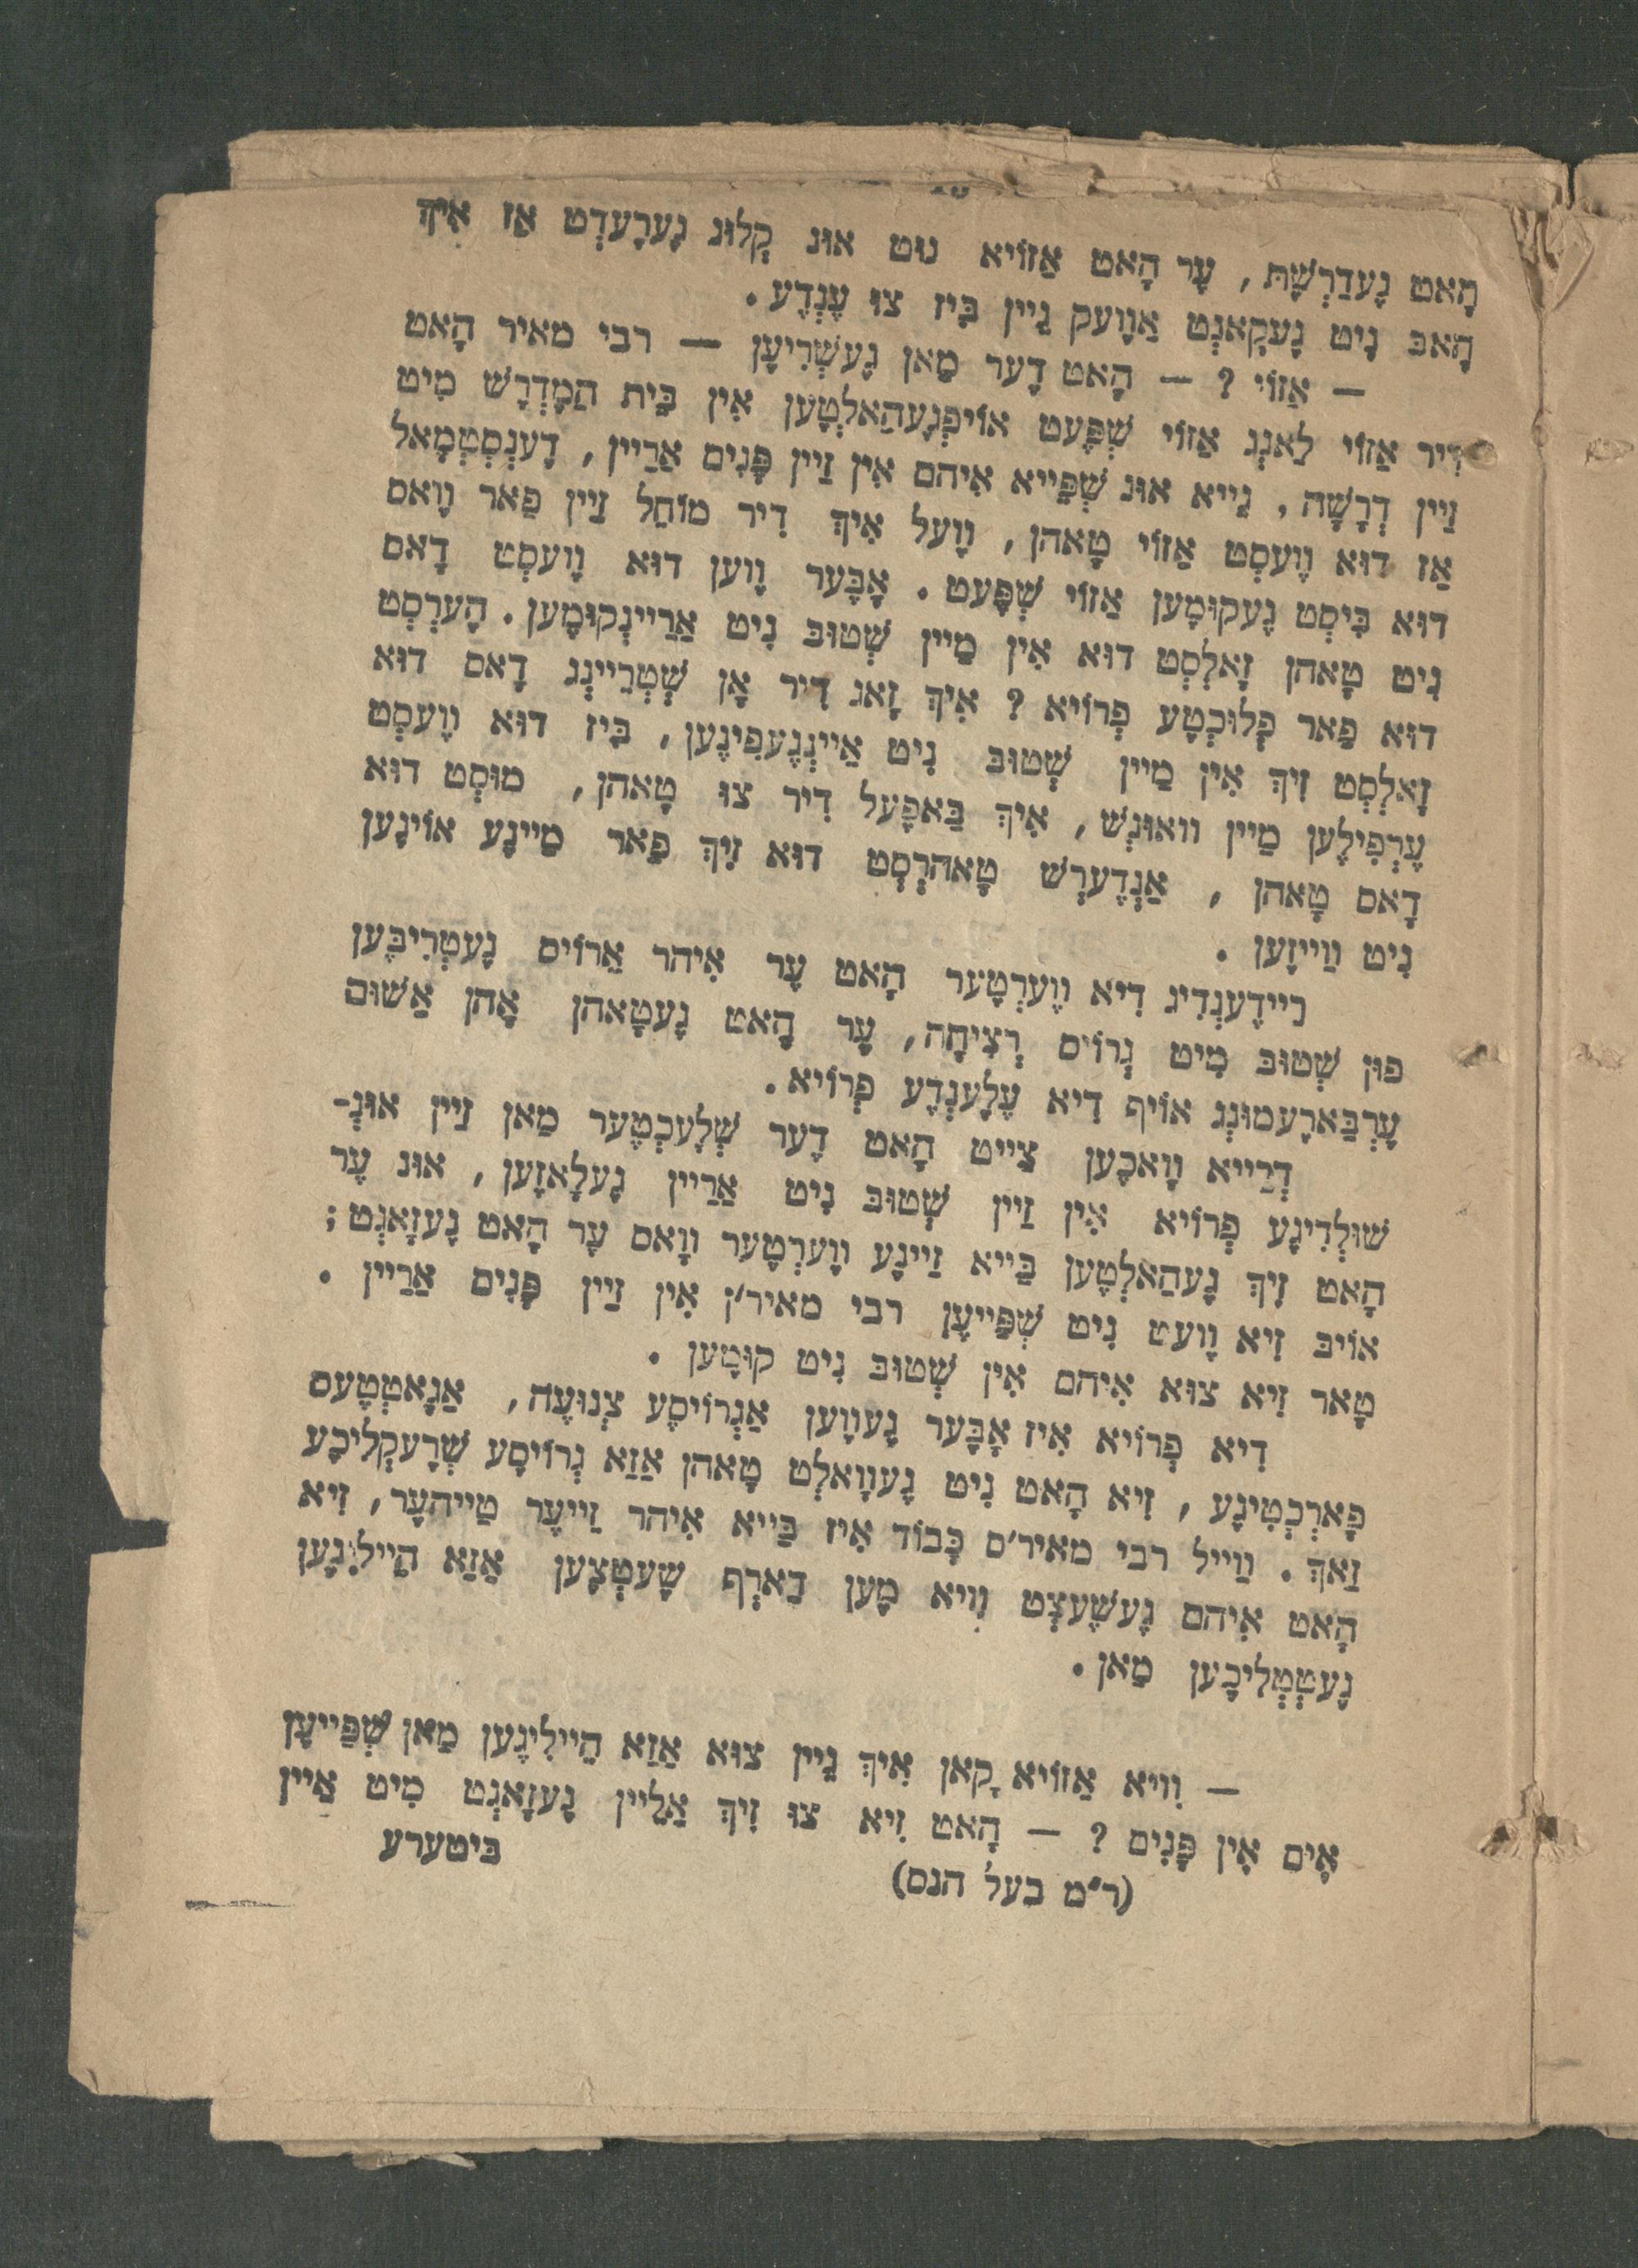 הָאט גֶעדַרְשֶׁת, עֶר הָאט אַזוֹיא גוּט אוּנ קְלוּג גֶערֶעדְט אַז אִיךְ
הָאבּ נִיט גֶעקָאנְט אַוֶועק גֵיין בִּיז צוּ עֶנְדֶע.
— אַזוֹי ? — הָאט דֶער מַאן גֶעשְׁרִיעֶן — רבי מאיר הָאט
דִיר אַזוֹי לַאנְג אַזוֹי שְׁפֶּעט אוֹיפְגֶעהַאלְטֶען אִין בֵּית הַמֶדְרָשׁ מִיט
זַיין דְרָשָׁה, גֵייא אוּנ שְׁפַּייא אִיהם אִין זַיין פָּנִים אַרַיין, דֶענְסְטְמָאל
אַז דוּא וֶועסְט אַזוֹי טָאהן, וֶועל אִיךְ דִיר מוֹחַל זַיין פַאר וָואס
דוּא בִּיסְט גֶעקוּמֶען אַזוֹי שְׁפֶּעט. אָבֶּער וֶוען דוּא וֶועסְט דָאס
נִיט טָאהן זָאלְסְט דוּא אִין מַיין שְׁטוּבּ נִיט אַרַיינְקוּמֶען. הֶערְסְט
דוּא פַאר פְלוּכְטֶע פְרוֹיא ? אִיךְ זָאג דִיר אָן שְׁטְרֵיינְג דָאס דוּא
זָאלְסְט זִיךְ אִין מַיין שְׁטוּבּ נִיט אַיינְגֶעפִינֶען, בִּיז דוּא וֶועסְט
עֶרְפִילֶען מַיין וואוּנְשׁ, אִיךְ בַּאפֶעל דִיר צוּ טָאהן, מוּסְט דוּא
דָאס טָאהן, אַנְדֶערְשׁ טָאהרְסְט דוּא זִיךְ פַאר מַיינֶע אוֹיגֶען
נִיט וַוייזֶען.
רֵיידֶענְדִיג דִיא וֶוערְטֶער הָאט עֶר אִיהר אַרוֹיס גֶעטְרִיבֶּען
פוּן שְׁטוּבּ מִיט גְרוֹיס רְצִיחָה, עֶר הָאט גֶעטָאהן אָהן אַשׁוּם
עֶרְבַּארֶעמוּנְג אוֹיף דִיא עֶלֶענְדֶע פְרוֹיא.
דְרַייא וָואכֶען צַייט הָאט דֶער שְׁלֶעכְטֶער מַאן זַיין אוּנְ-
שׁוּלְדִיגֶע פְרוֹיא אִין זַיין שְׁטוּבּ נִיט אַרַיין גֶעלָאזֶען, אוּנ עֶר
הָאט זִיךְ גֶעהַאלְטֶען בַּייא זַיינֶע וֶוערְטֶער וָואס עֶר הָאט גֶעזָאגְט ;
אוֹיבּ זִיא וֶועט נִיט שְׁפַּייעֶן רבי מאיר׳ן אִין זַיין פָּנִים אַרַיין.
טָאר זִיא צוּא אִיהם אִין שְׁטוּבּ נִיט קוּמֶען.
דִיא פְרוֹיא אִיז אָבֶּער גֶעוֶוען אַגְרוֹיסֶע צְנוּעָה, אַגָאטְטֶעס
פָארְכְטִיגֶע, זִיא הָאט נִיט גֶעוָואלְט טָאהן אַזַא גְרוֹיסֶע שְׁרֶעקְלִיכֶע
זַאךְ. וַוייל רבי מאיר׳ס כָּבוֹד אִיז בַּייא אִיהר זֵייעֶר טַייהֶער, זִיא
הָאט אִיהם גֶעשֶׁעצְט וִויא מֶען דַארְף שֶׁעטְצֶען אַזַא הֵיילִיגֶען
גֶעטְטְלִיכֶען מַאן.
— וִויא אַזוֹיא קָאן אִיךְ גֵיין צוּא אַזַא הֵיילִיגֶען מַאן שְׁפַּייעֶן
אִים אִין פָּנִים ? — הָאט זִיא צוּ זִיךְ אַלֵיין גֶעזָאגְט מִיט אַיין
בּיטערע
(ר״מ בעל הנס)